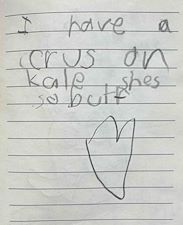 I have a
crus on
kale shes
so butf